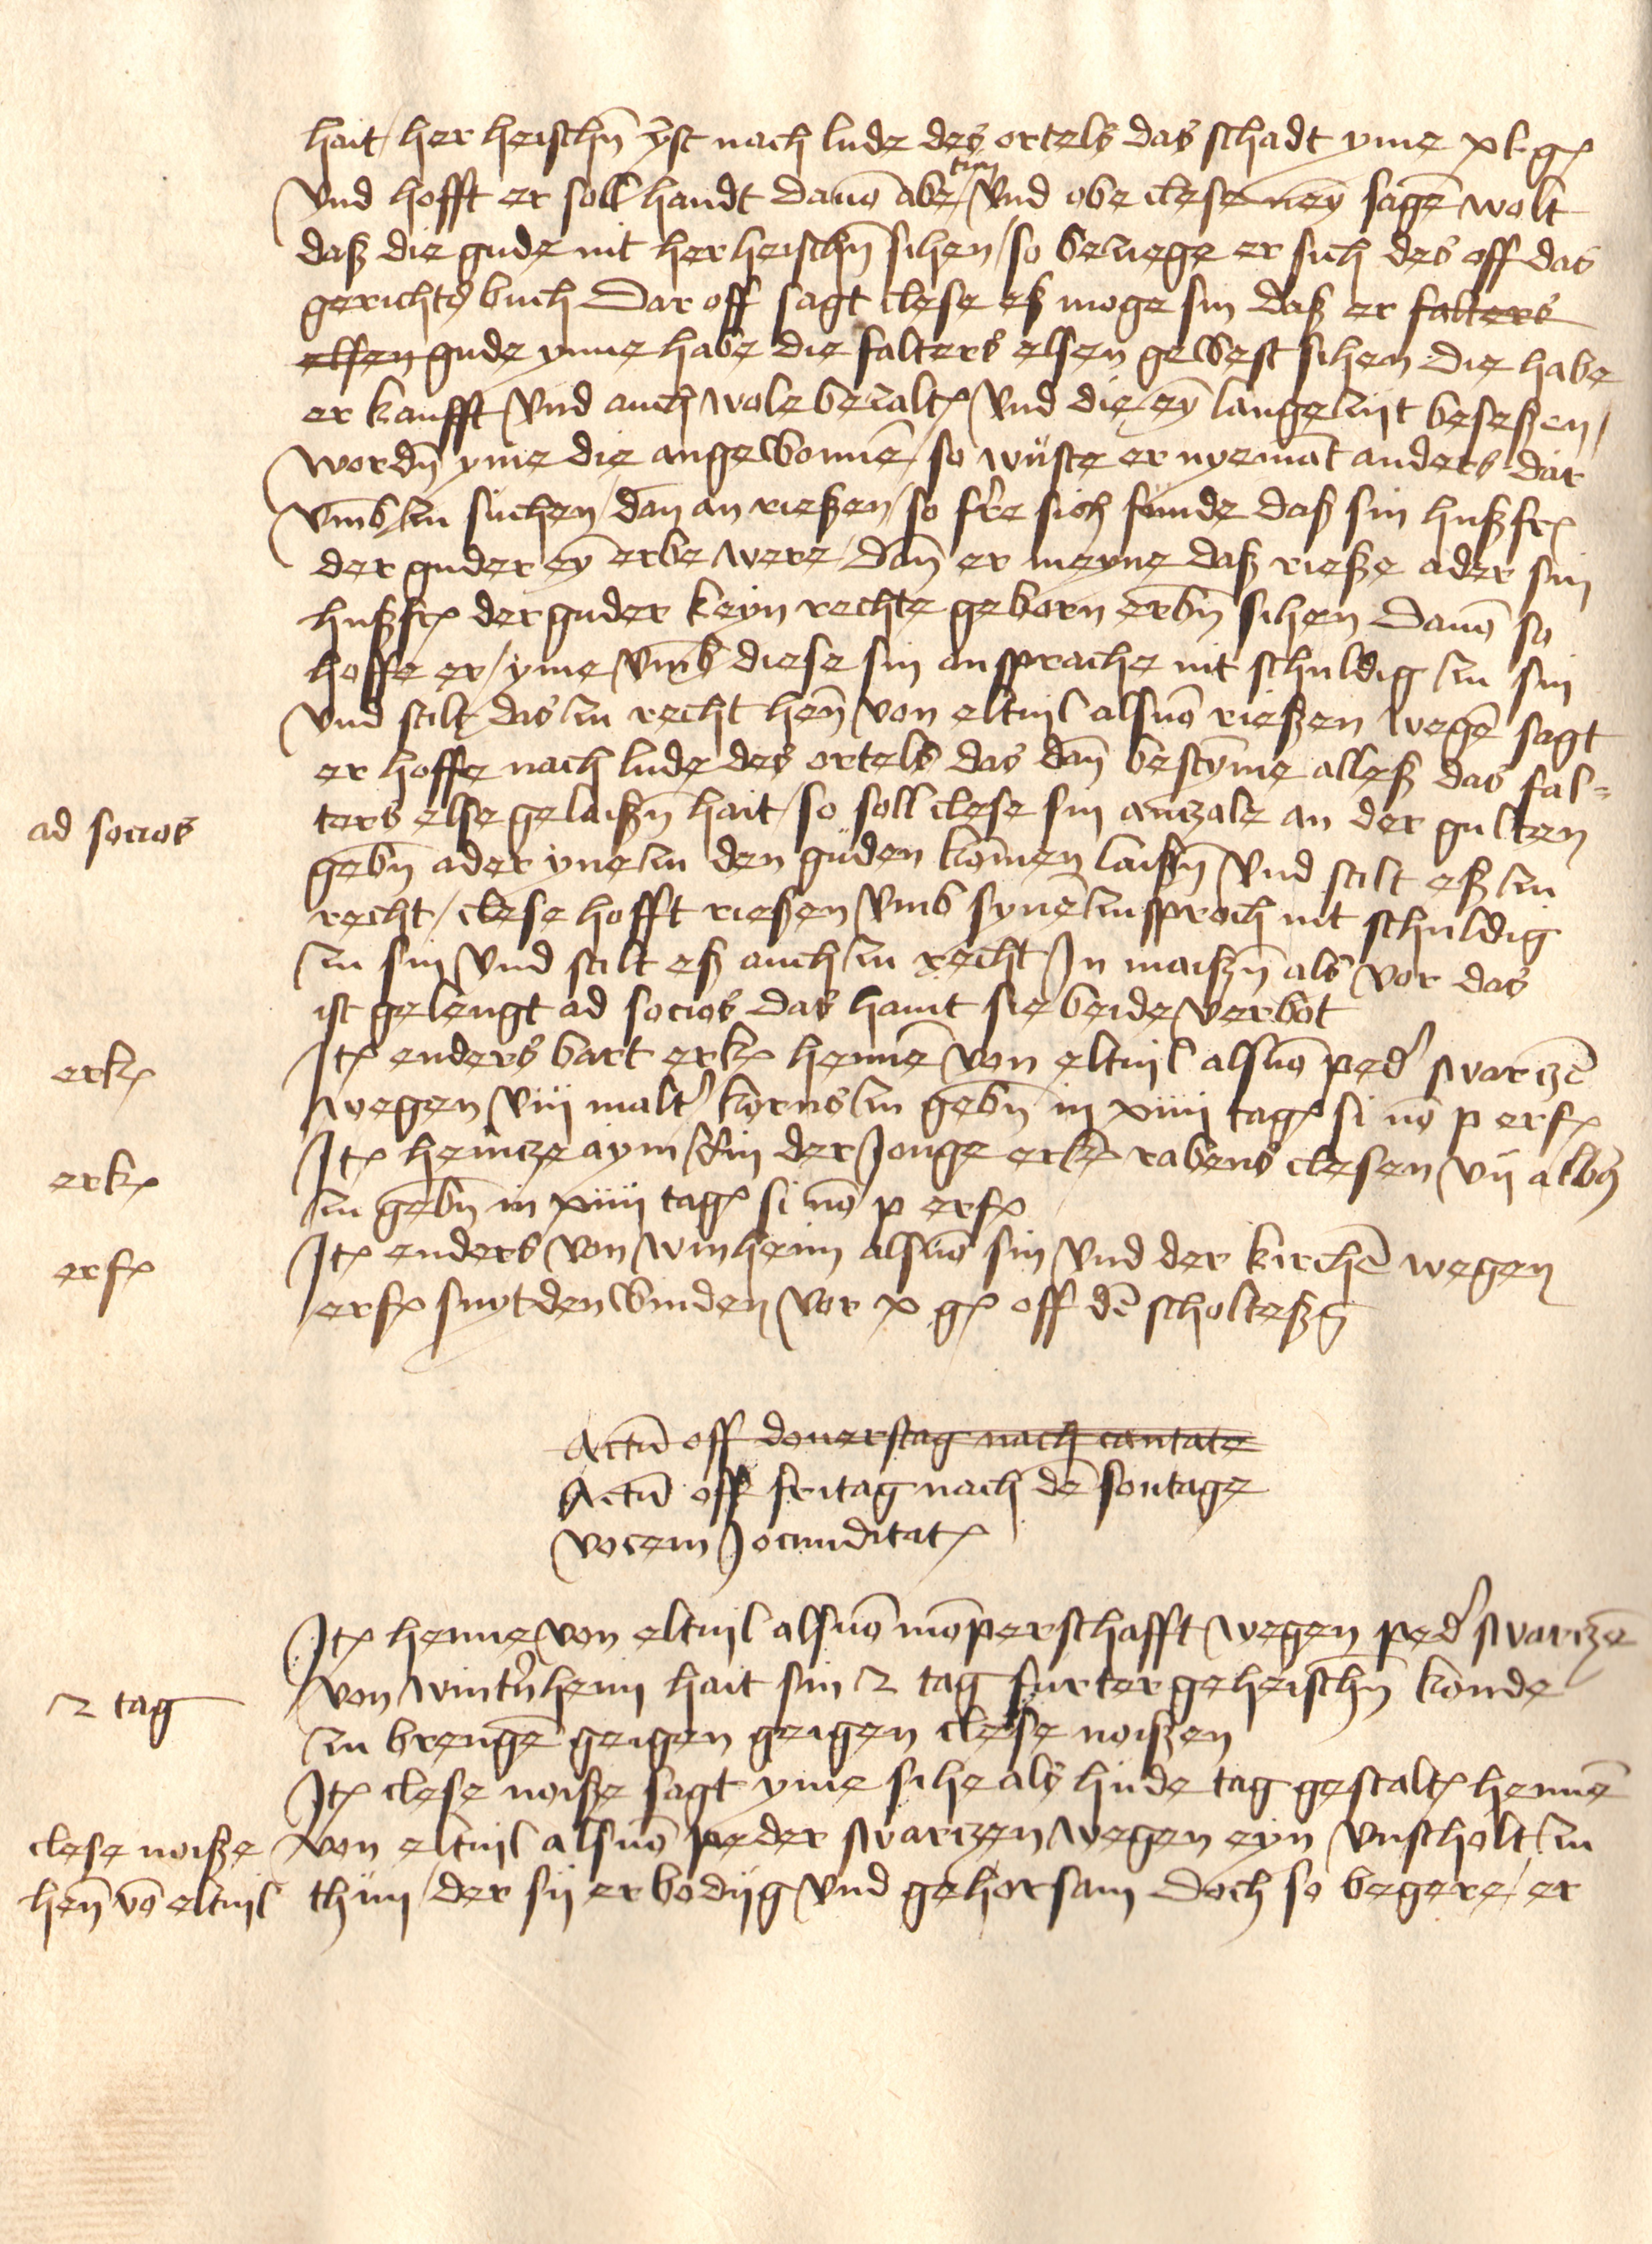 hait / her heischn̄ yst nach lude des ortels das schadt yme xl gꝭ
vnd hofft er soll handt dauō abe tun / vnd obe clese neȳ sagē wolt
daß die gude nit her heischn̄ sihen / so beziege er sich des off das
gerichts buch Dar off sagt clese eß moge sin daß er falters
elsen gude ynne habe die falters elsen gewest sihen die habe
er kaufft vnd auch wole bezaltꝭ vnd die eȳ lange zijt beseßen /
wordn̄ yme die angewonnē / so wüste er nyemāt anders dar
vmb zu suchen / dan an rießen / so fre sich funde daß sin hußfrꝭ
der guder eȳ erbe were / dan̄ er meyne daß rieße ader sin
hußfrꝭ der guder keyn rechte geborn erbn̄ sihen Dauō so
hoffe er / yme vmb diese sin ansprache nit schuldig zu sin
vnd stilt das zu recht hen̄ von eltuil als vō rießen wegē sagt
er hoffe nach lude des ortels das dan̄ bestȳme alleß das fal-
ad socios
ters else gelaißn̄ hait / so soll clese sin anzale an der gulten
gebn̄ ader yne zu den guden komēn laißn̄ vnd stilt eß zu
recht / clese hofft rießen vmb synē zusproch nit schuldig
zu sin vnd stilt eß auch zu recht Jn maißn̄ als vor das
ist gelengt ad socios das haint sie beide verbot
erkꝭ
Jtꝭ enders bart erkꝭ hennē von eltuil als vō ped' swarczē
wegen viij malt' korns zu gebn̄ in xiiij tagꝭ si nō p erfꝭ
erkꝭ
Jtꝭ heincze der Jonge erkꝭ rabens clesen vij albꝰ
zu gebn̄ in xiiij tagꝭ si nō p erfꝭ
erfꝭ
Jtꝭ enders von winheim als vō sin vnd der kirchē wegen
erfꝭ snytden winden vor x gꝭ off dē scholteßn̄
Actū off donerstag nach cantate
Actū off fritag nach dē sontage
vocem Jocunditatꝭ
Jtꝭ henne von eltuil als vō mōperschafft wegen ped' swarczē
2 tag
von wint'nheim hait sin 2 tag furter geheischn̄ konde
zu brengē geigen geigen clese noißen
Jtꝭ clese noiße sagt yme sihe als hude tag gestaltꝭ hennē
clese noiße
von eltuil als vō peder swarczen wegen eyn vnscholt zu
hen̄ vō eltuil
thun / der sij erbodijg vnd gehorsam Doch so begere / er